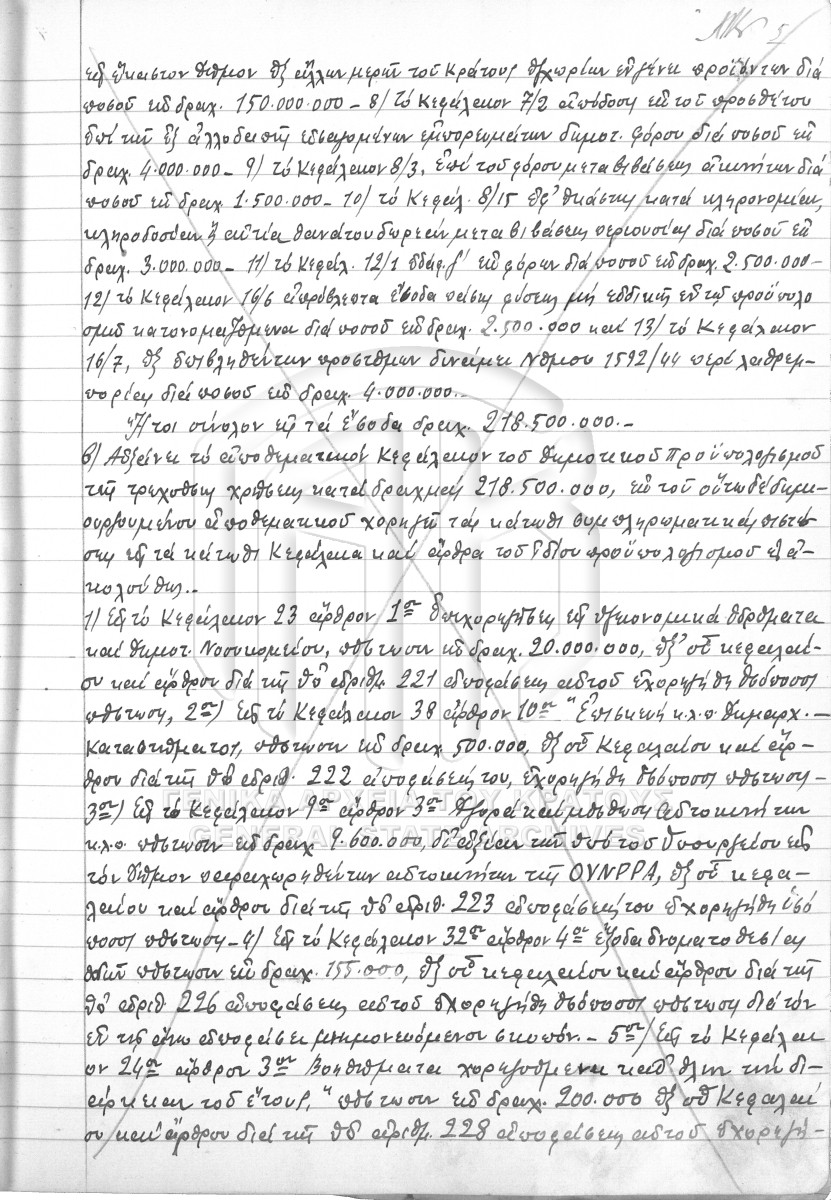 εἰς ἕκαστον Δῆμον ἐξ ἄλλων μερῶν τοῦ Κράτους ἐγχωρίων ἐν γένει προϊόντων διὰ
ποσοῦ ἐκ δραχ. 150.000.000 – 8) τὸ Κεφάλαιον 7/2 ἀπόδοσις ἐκ τοῦ προσθέτου
ἐπὶ τῶν ἐξ ἀλλοδαπῆς εἰσαγομένων ἐμπορευμάτων δημοτ. φόρου διὰ ποσοῦ ἐκ
δραχ. 4.000.000 – 9) τὸ Κεφάλαιον 8/3, ἐπὶ τοῦ φόρου μεταβιβάσεως ἀκινήτων διὰ
ποσοῦ ἐκ δραχ. 1.500.000 – 10) τὸ Κεφάλ. 8/15 ἐφ' ἑκάστης κατὰ κληρονομίαν,
κληροδοσίαν ἢ αἰτίᾳ θανάτου δωρεὰν μεταβιβάσεως περιουσίας διὰ ποσοῦ ἐκ
δραχ. 3.000.000 – 11) τὸ Κεφάλ. 12/1 ἐδάφ. γ' ἐκ φόρων διὰ ποσοῦ ἐκ δραχ. 2.500.000 –
12) τὸ Κεφάλαιον 16/6 ἀπρόβλεπτα ἔσοδα πάσης φύσεως μὴ εἰδικῶς ἐν τῷ προϋπολο
γισμῷ κατονομαζόμενα διὰ ποσοῦ ἐκ δραχ. 2.500.000 καὶ 13) τὸ Κεφάλαιον
16/7, ἐξ ἐπιβληθέντων προστίμων δυνάμει Νόμου 1592/44 περὶ λαθρεμ–
πορίας διὰ ποσοῦ ἐκ δραχ. 4.000.000..
Ἤτοι σύνολον εἰς τὰ ἔσοδα δραχ. 218.500.000.–
β) Αὐξάνει τὸ ἀποθεματικὸν Κεφάλαιον τοῦ δημοτικοῦ προϋπολογισμοῦ
τῆς τρεχούσης χρήσεως κατὰ δραχμὰς 218.500.000, ἐκ τοῦ οὕτω δὲ δημι–
ουργουμένου ἀποθεματικοῦ χορηγεῖ τὰς κάτωθι συμπληρωματικὰς πιστώ
σεις εἰς τὰ κάτωθι Κεφάλαια καὶ ἄρθρα τοῦ ἰδίου προϋπολογισμοῦ ὡς ἀ–
κολούθως..
1) Εἰς τὸ Κεφάλαιον 23 ἄρθρον 1ον Ἐπιχορηγήσεις εἰς ὑγειονομικὰ ἱδρύματα
καὶ δημοτ. Νοσοκομεῖον, πίστωσιν ἐκ δραχ. 20.000.000, ἐξ οὗ κεφαλαί–
ου καὶ ἄρθρου διὰ τῆς ὑπ' ἀριθμ. 221 ἀποφάσεως αὐτοῦ ἐχορηγήθη ἰσόποσος
πίστωσις, 2ον) Εἰς τὸ Κεφάλαιον 38 ἄρθρον 10ον "Ἐπισκευὴ κ.λ.π. δημαρχ. –
Καταστήματος, πίστωσιν ἐκ δραχ. 500.000, ἐξ οὗ Κεφαλαίου καὶ ἄρ–
θρου διὰ τῆς ὑπ' ἀριθ. 222 ἀποφάσεώς του, ἐχορηγήθη ἰσόποσος πίστωσις –
3ον) Εἰς τὸ Κεφάλαιον 9ον ἄρθρον 3ον Ἀγορὰ καὶ μίσθωσις αὐτοκινήτων
κ.λ.π. πίστωσιν ἐκ δραχ. 9.600.000, δι' ἀξίαν τῶν ὑπὸ τοῦ Ὑπουργείου εἰς
τὸν δῆμον παραχωρηθέντων αὐτοκινήτων τῆς ΟΥΝΡΡΑ, ἐξ οὗ κεφα–
λαίου καὶ ἄρθρου διὰ τῆς ὑπ' ἀριθ. 223 ἀποφάσεώς του ἐχορηγήθη ἰσό
ποσος πίστωσις – 4) Εἰς τὸ Κεφάλαιον 32ον ἄρθρον 4ον ἔξοδα ὀνοματοθεσίας
ὁδῶν πίστωσιν ἐκ δραχ. 155.000, ἐξ οὗ κεφαλαίου καὶ ἄρθρου διὰ τῆς
ὑπ' ἀριθ 226 ἀποφάσεως αὐτοῦ ἐχορηγήθη ἰσόποσος πίστωσις διὰ τὸν
ἐν τῇ ἄνω ἀποφάσει μνημονευόμενον σκοπόν. – 5ον) Εἰς τὸ Κεφάλαι
ον 24ον ἄρθρον 3ον Βοηθήματα χορηγούμενα καθ' ὅλην τὴν δι–
άρκειαν τοῦ ἔτους, " πίστωσιν ἐκ δραχ. 200.000 ἐξ οὗ Κεφαλαί
ου καὶ ἄρθρου διὰ τῆς ὑπ' ἀριθμ. 228 ἀποφάσεως αὐτοῦ ἐχορηγή–
ΓΕΝΙΚΑ ΑΡΧΕΙΑ ΤΟΥ ΚΡΑΤΟΥΣ
GENERAL STATE ARCHIVES